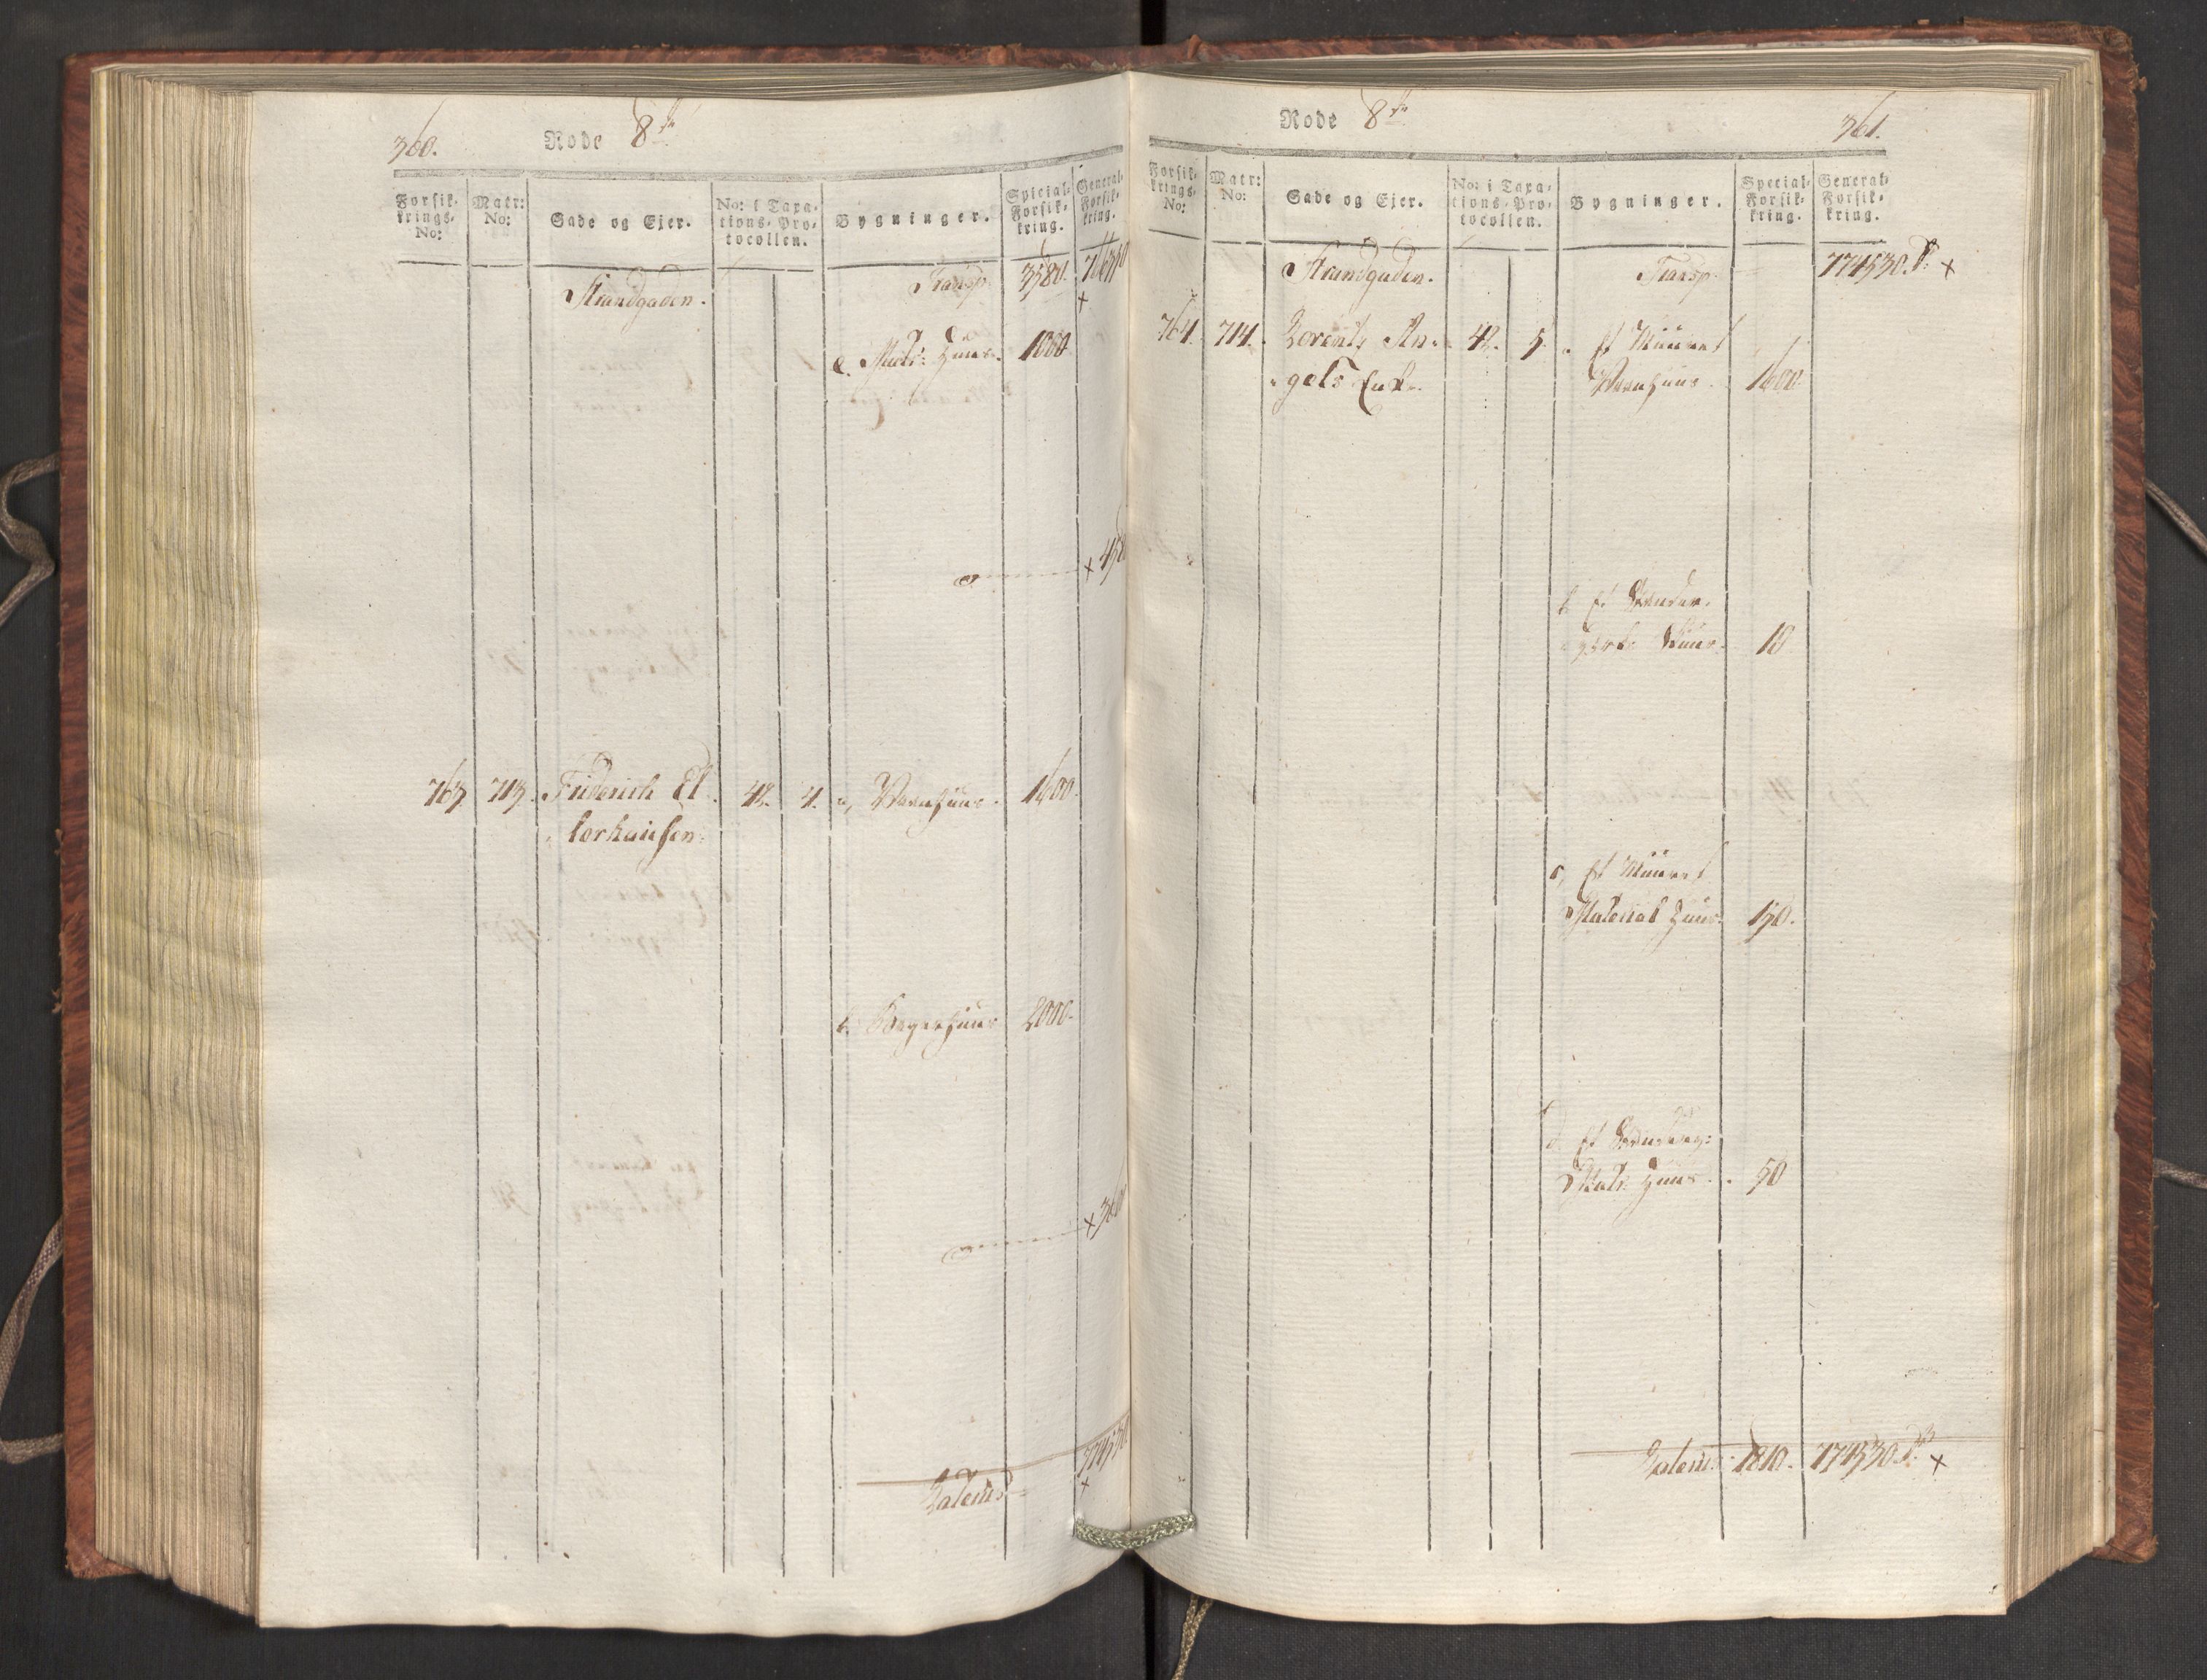 360.
Rode 8de
Forsik-
krings-
No:
Matr:
No:
Gade og Ejer.
No: i Taxa-
tions-Pro-
tocollen.
Bygninger.
Special-
Forsik-
kring.
General-
Forsik-
kring.
Strandgaden.
Transp. 3580.
c. Matr: Huus. 1000
763 713. Friderich El-
lerhausen. 42. 4. a, Vaanhuus. 1600.
b. Bagerhuus 2000.
Lateris
Rode 8de
361.
Forsik-
krings-
No:
Matr:
No:
Gade og Ejer.
No: i Taxa-
tions-Pro-
tocollen.
Bygninger.
Special-
Forsik-
kring.
General-
Forsik-
kring.
Strandgaden.
Transp. 774530. x
764. 714. Lorentz An-
gels Enke. 42. 5. a Et Muuret
Vaanhuus. 1600
b Et
Skuur. 10
c, Et Muuret
Material Huus. 150.
d. Et
Matr: Huus. 50
Lateris 1810. 774530. x